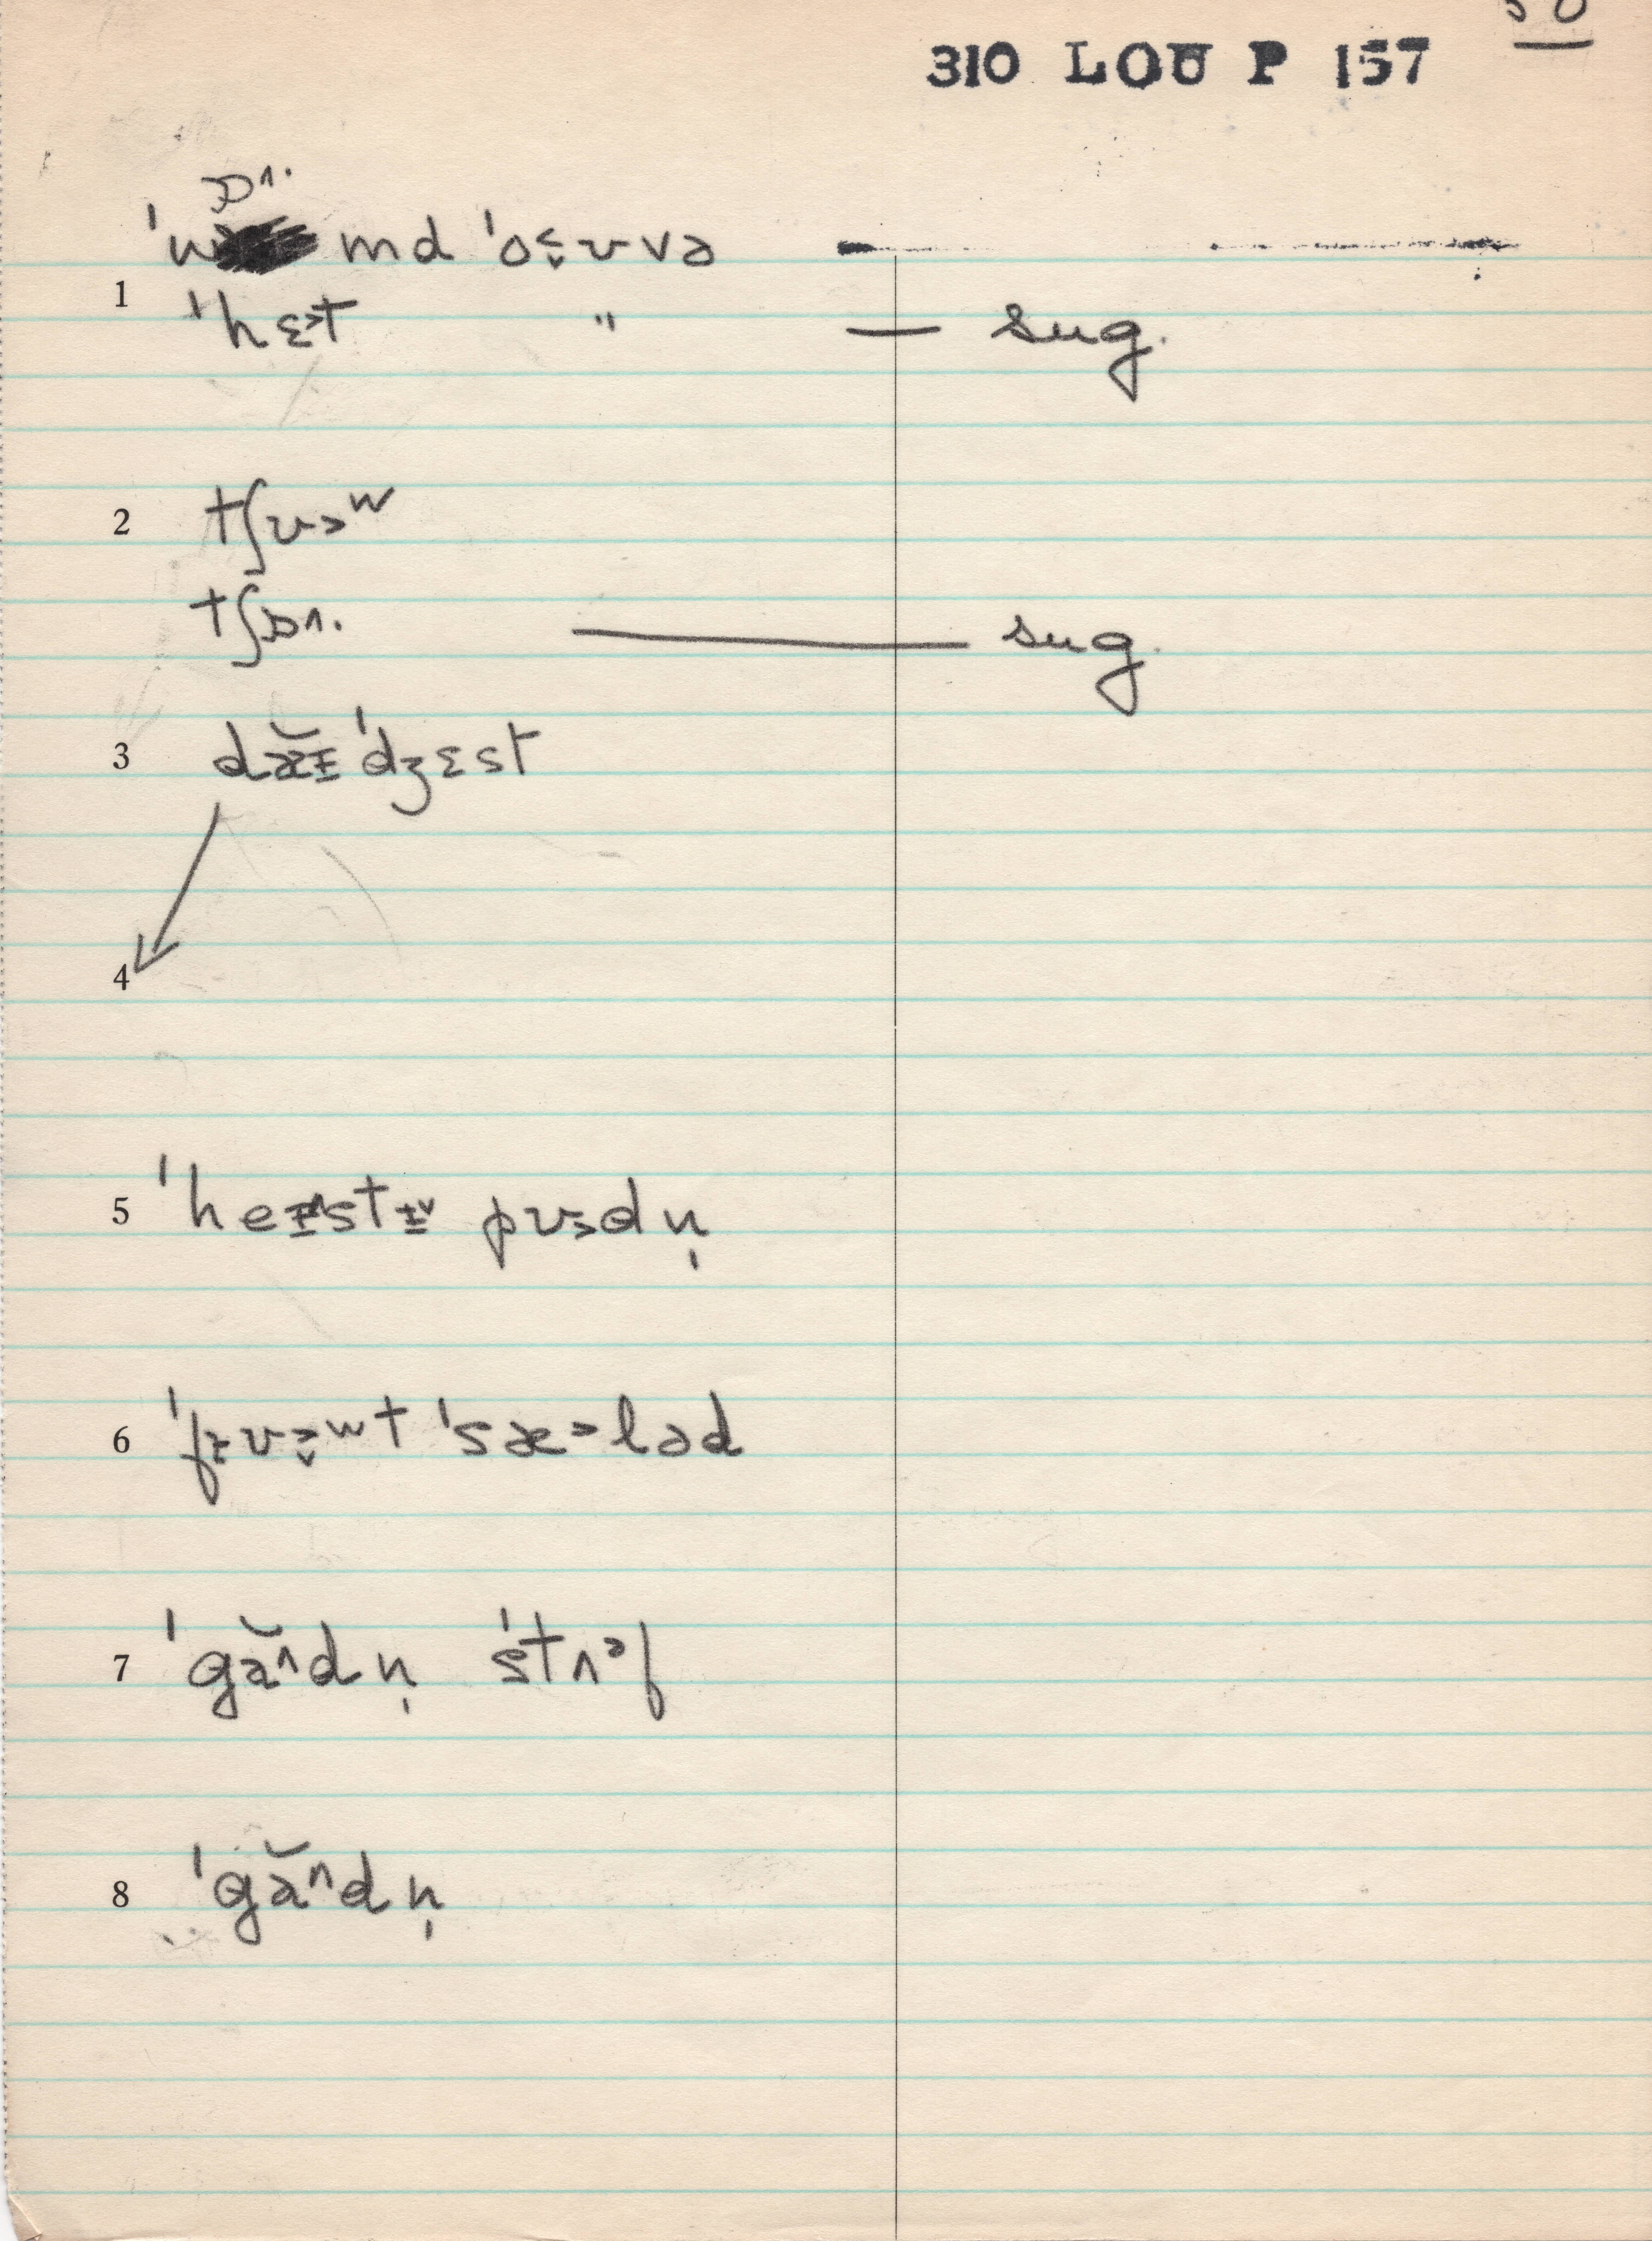 310 LOU P 157
ɒ˄.
1 ˈw md ˈo˂̬ʊvə
ˈhɛ˃t " — sug.
2 tʃʊ˃ʷ
tʃɒ˄. — sug.
3 dæ̆ɪ ˈdʒɛst
4
5 ˈheɪ˄stɪ˅ pʊ˃dn̩
6 ˈfɪʊ˃̬ʷt ˈsæ˃ləd
7 ˈgă˄dn̩ ˈstʌᵊf
8 ˈgă˄dn̩